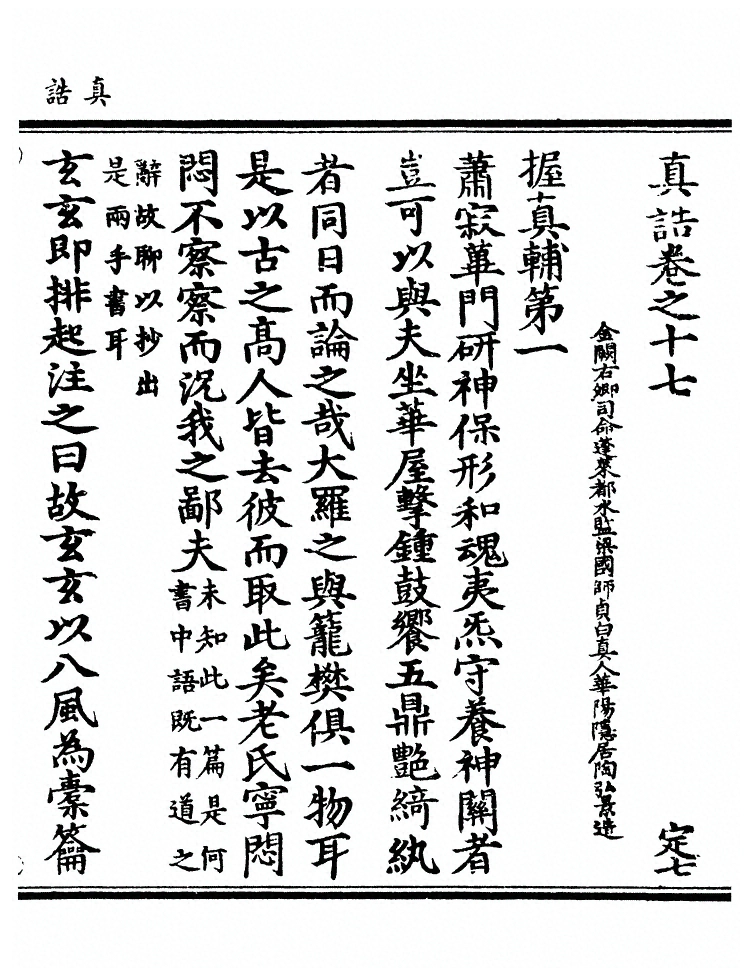 真誥
真誥卷之十七
定七
金闕右卿司命蓬萊都水監梁國師貞白真人華陽隱居陶弘景造
握真輔第一
蕭寂蓽門研神保形和魂夷炁守養神關者
豈可以與夫坐華屋擊鍾鼓饗五鼎艷綺紈
者同日而論之哉大羅之與籠樊俱一物耳
是以古之高人皆去彼而取此矣老氏寧悶
悶不察察而況我之鄙夫
未知此一篇是何
書中語既有道之
辭故聊以抄出
是兩手書耳
玄玄即排起注之曰故玄玄以八風為橐籥